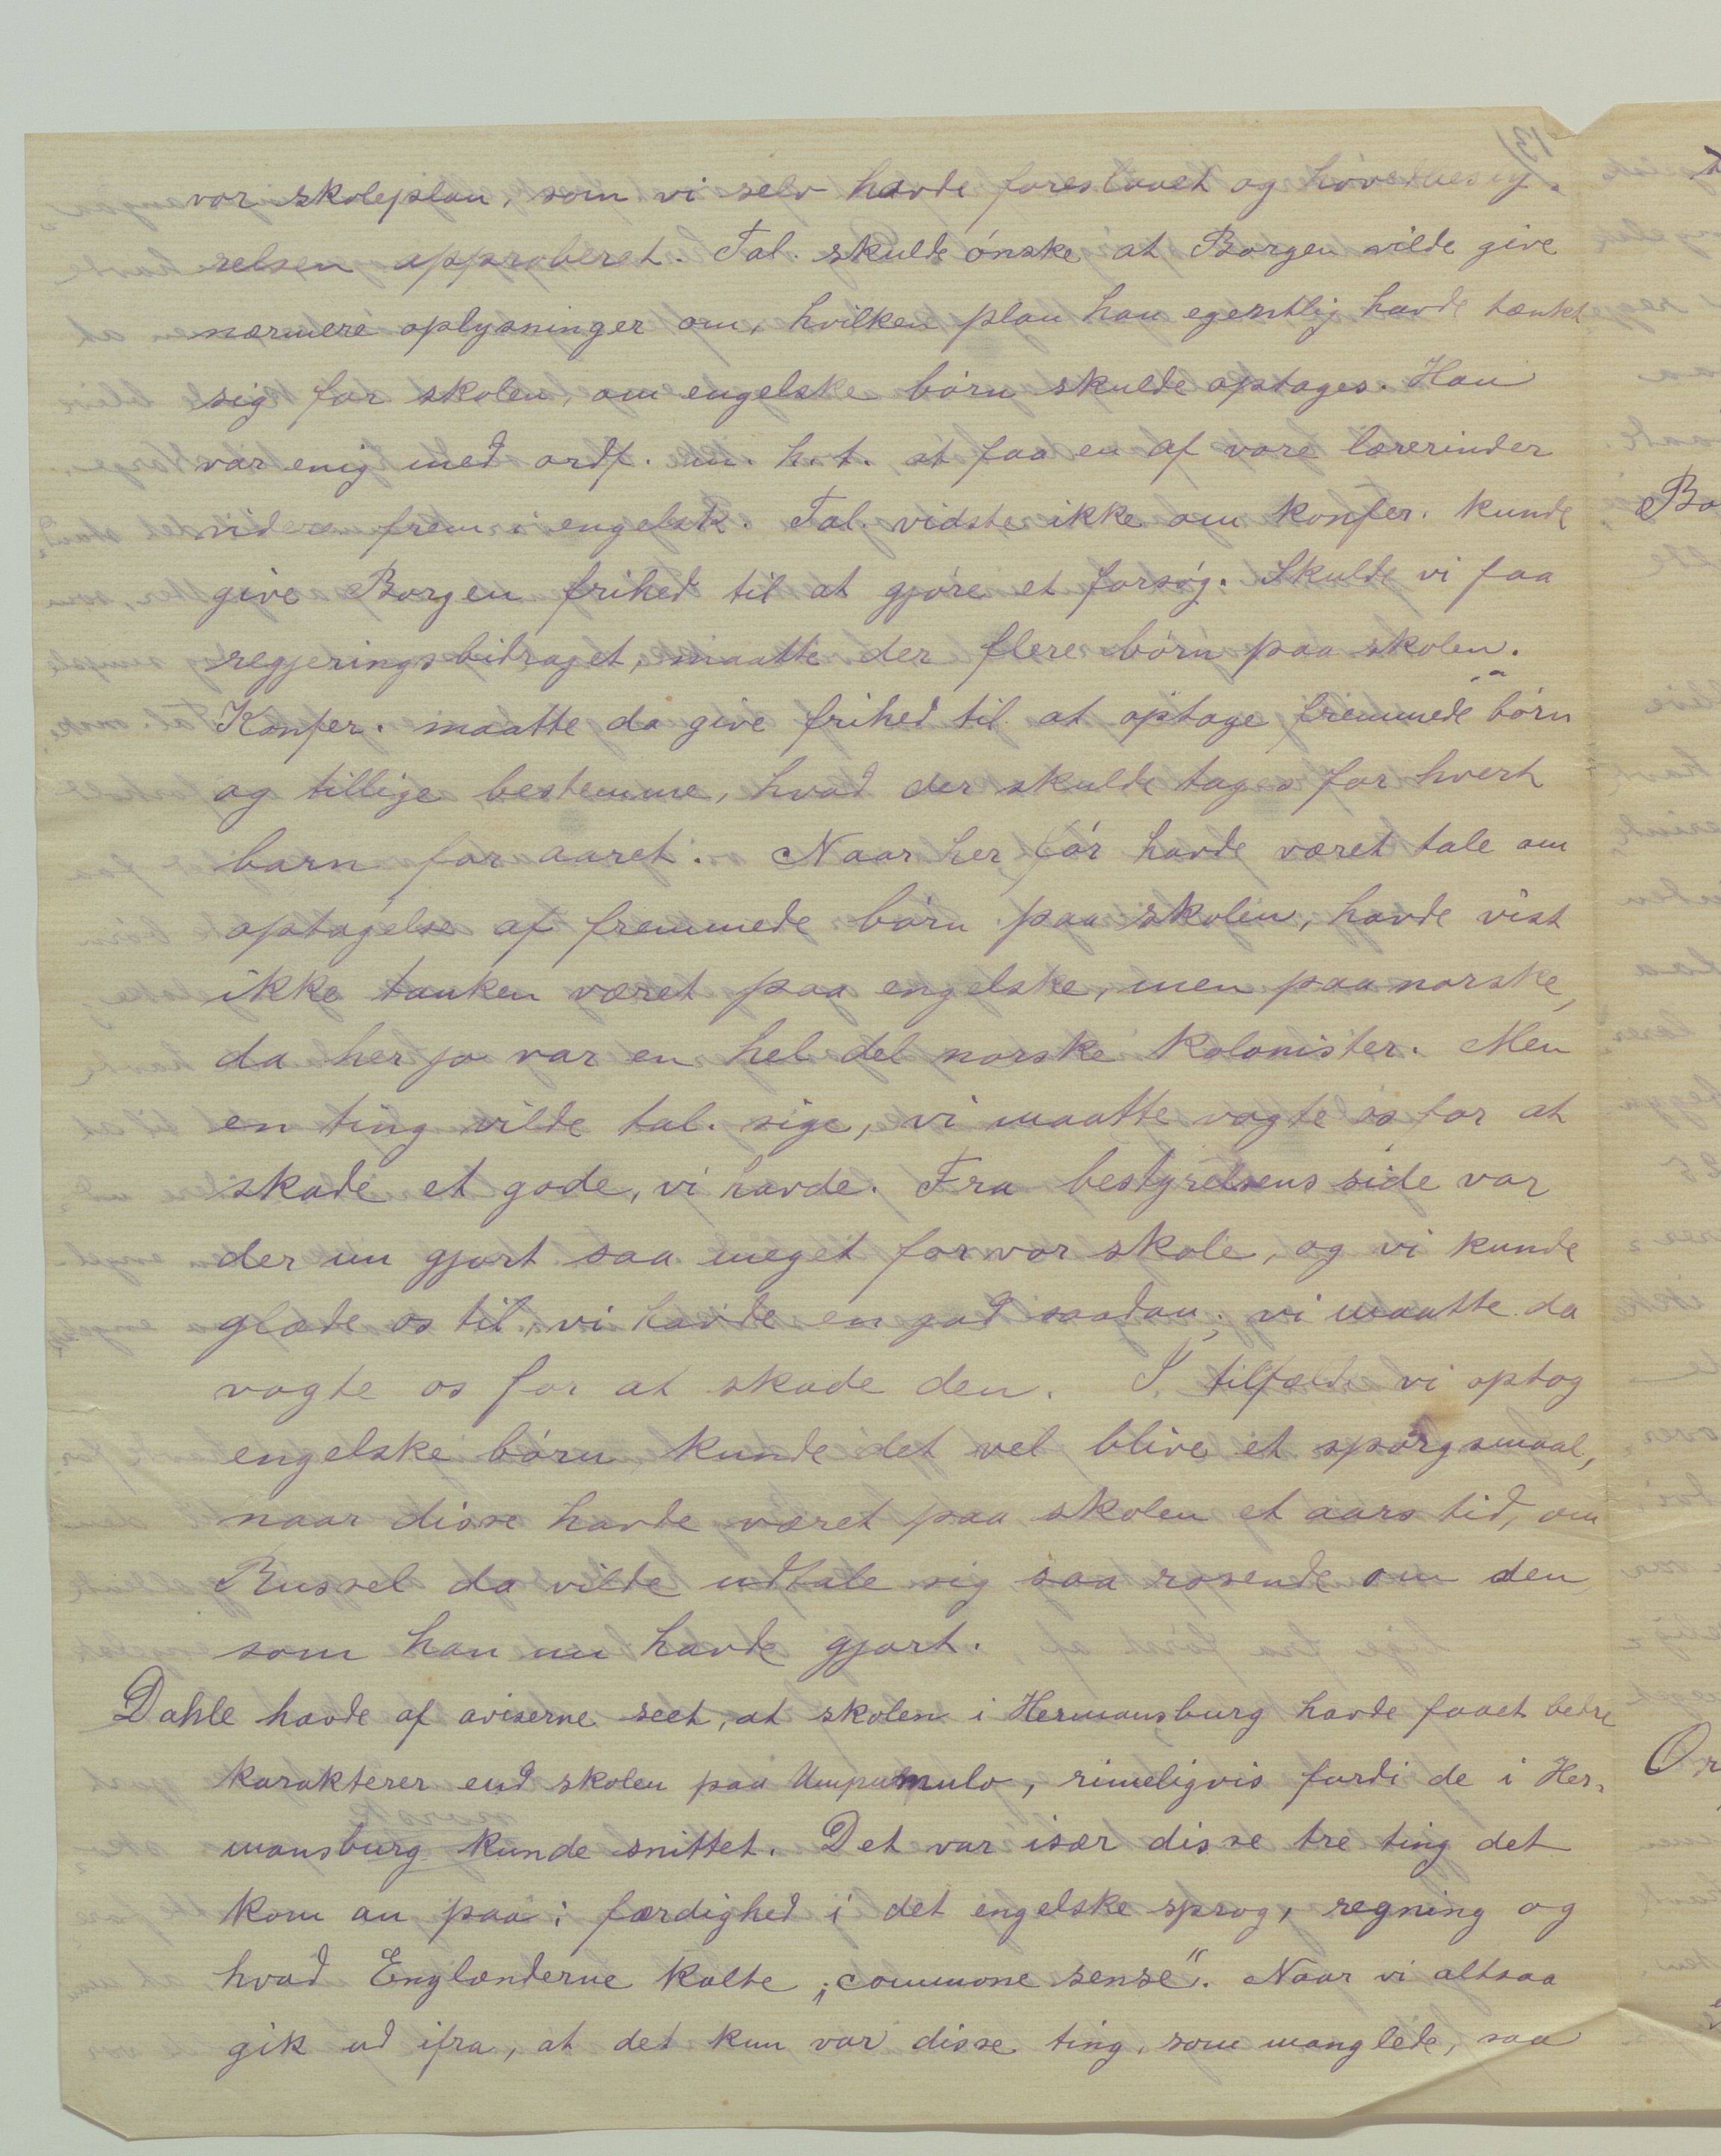 vor skoleplan, som vi selv havde foreslaaet og hovedbesty-
relsen approberet. Tal. skulde ónske at Borgen vilde give
nærmere oplysninger om, hvilken plan han egentlig havde tænkt
sig for skolen, om engelske bórn skulde optages. Han
var enig med ordf. m. h. t. at faa en af vore lærerinder
videre frem i engelsk. Tal. vidste ikke om konfer. kunde
give Borgen frihed til at gjóre et forsóg. Skulde vi faa
regjeringsbidraget, maatte der flere bórn paa skolen.
Konfer. maatte da give frihed til at optage fremmede bórn
og tillige bestemme, hvad der skulde tages for hvert
barn for aaret. Naar her fór havde været tale om
optagelse af fremmede bórn paa skolen, havde vist
ikke tanken været paa engelske, men paa norske,
da her jo var en hel del norske kolonister. Men
en ting vilde tal. sige, vi maatte vogte os for at
skade et gode, vi havde. Fra bestyrelsens side var
der nu gjort saa meget for vor skole, og vi kunde
glæde os til, vi havde en god saadan; vi maatte da
vogte os for at skade den. I tilfælde vi optog
engelske bórn kunde det vel blive et spórgsmaal,
naar disse havde været paa skolen et aars tid, om
Russel da vilde udtale sig saa rosende om den
som han nu havde gjort.
Dahle havde af aviserne seet, at skolen i Hermansburg havde faaet bedre
karakterer end skolen paa Umpumulo, rimeligvis fordi de i Her-
mansburg kunde snittet. Det var især disse tre ting det
kom an paa: færdighed i det engelske sprog, regning og
hvad Englænderne kalte „commone sense". Naar vi altsaa
gik ud ifra, at det kun var disse ting, som manglede, saa
Bo
Or